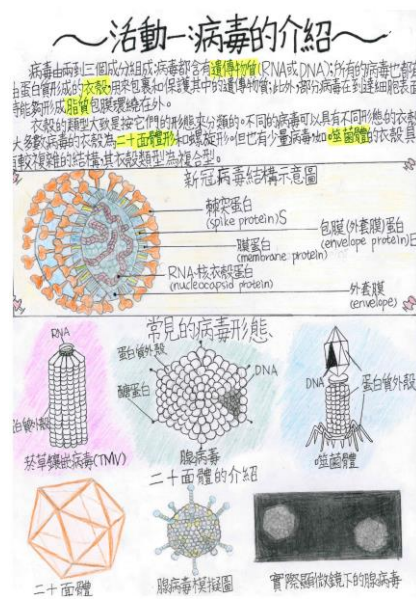 ~活動一:病毒的介紹~
病毒由兩到三個成分組成:病毒都含有遺傳物質(RNA或DNA);所有的病毒也都有
由蛋白質形成的衣殼,用來包裹和保護其中的遺傳物質;此外,部分病毒在到達細胞表面
時能夠形成脂質包膜環繞在外。
衣殼的類型大致是按它們的形態來分類的。不同的病毒可以具有不同形態的衣殼
大多數病毒的衣殼為二十面體形和螺旋形,但也有少量病毒如噬菌體的衣殼具
有較複雜的結構,其衣殼類型為複合型。
新冠病毒結構示意圖
棘突蛋白
(spike protein)S
包膜(外套膜)蛋白
(envelope protein)E
膜蛋白
(membrane protein)
RNA-核衣殼蛋白
(nucleocapsid protein)
外套膜
(envelope)
常見的病毒形態
RNA
蛋白質外殼
菸草鑲嵌病毒(TMV)
蛋白質外殼
DNA
醣蛋白
腺病毒
DNA
蛋白質外殼
噬菌體
二十面體的介紹
二十面體
腺病毒模擬圖
實際顯微鏡下的腺病毒